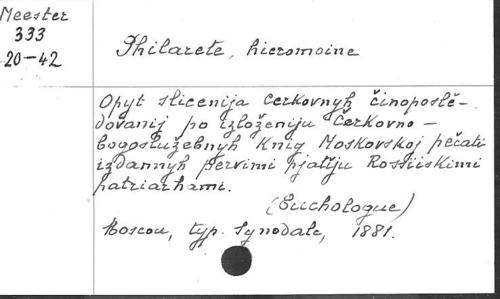 Meester
333
20-42
Philarete, hieromoine
Opyt slicenija cerkovnyh činoposlě-
dovanij po izloženiju čerkovno-
bogoslužebnyh knig Moskovskoj pečati
izdannyh pervimi pjatiju Rossiiskimi
patriarhami.
(Euchologue)
Moscou, typ. Synodale, 1881.